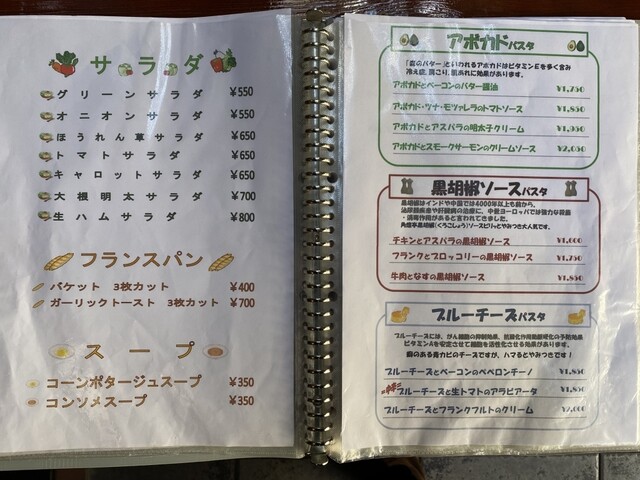 サラダ
グリーンサラダ ¥550
オニオンサラダ ¥550
ほうれん草サラダ ¥650
トマトサラダ ¥650
キャロットサラダ ¥650
大根明太サラダ ¥700
生ハムサラダ ¥800
フランスパン
バケット 3枚カット ¥400
ガーリックトースト 3枚カット ¥700
スープ
コーンポタージュスープ ¥350
コンソメスープ ¥350
アボカドパスタ
「森のバター」といわれるアボカドはビタミンEを多く含み
冷え症、肩こり、肌あれに効果があります。
アボカドとベーコンのバター醤油 ¥1,750
アボカド・ツナ・モツァレラのトマトソース ¥1,850
アボカドとアスパラの明太子クリーム ¥1,950
アボカドとスモークサーモンのクリームソース ¥2,050
黒胡椒ソースパスタ
黒胡椒はインドや中国では4000年以上も前から、
泌尿器疾患や肝臓病の治療に、中世ヨーロッパでは強力な殺菌
・消毒作用があると言われてきました。
チキンとアスパラの黒胡椒ソース ¥1,600
フランクとブロッコリーの黒胡椒ソース ¥1,750
牛肉となすの黒胡椒ソース ¥1,850
ブルーチーズパスタ
ブルーチーズには、がん細胞の抑制効果、
ビタミンAを安定させて細胞を活性化させる効果があります。
癖のある青カビのチーズですが、ハマるとやみつきです!
ブルーチーズとベーコンのペペロンチーノ ¥1,850
ブルーチーズと生トマトのアラビアータ ¥1,850
ブルーチーズとフランクフルトのクリーム ¥2,000